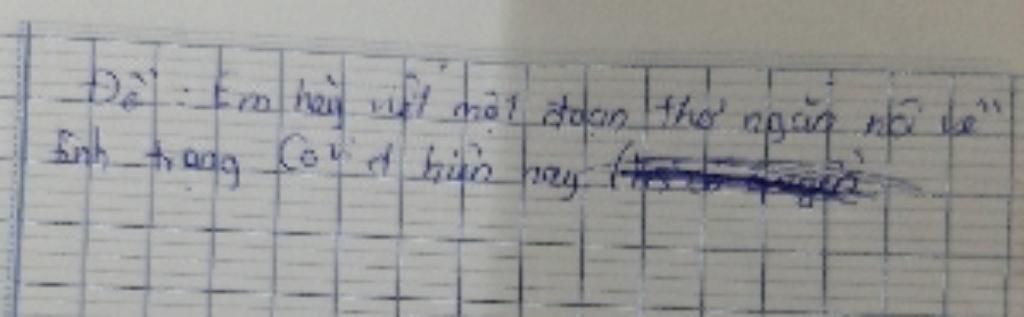 Đề : Em hãy viết một đoạn thơ ngắn nói về
tình trạng Covid hiện nay (